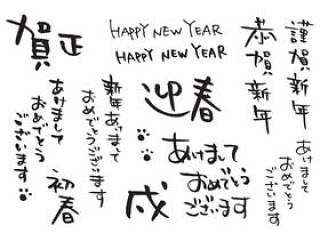 賀正
HAPPY NEW YEAR
HAPPY NEW YEAR
恭賀新年
謹賀新年
あけまして
おめでとう
ございます
初春
新年あけまして
おめでとうございます
迎春
戌
あけまして
おめでとう
ございます
あけまして
おめでとう
ございます